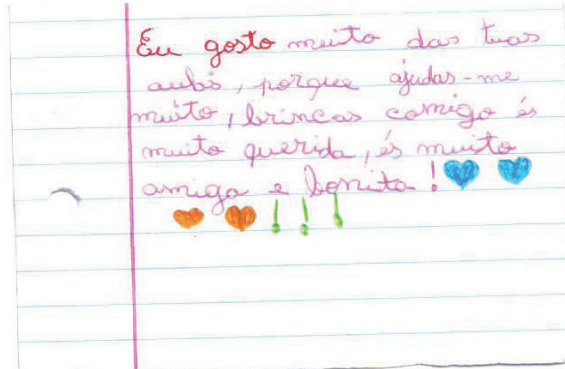 Eu gosto muito das tuas
aulas, porque ajudas-me
muito, brincas comigo és
muito querida, és muito
amiga e bonita!
!!!